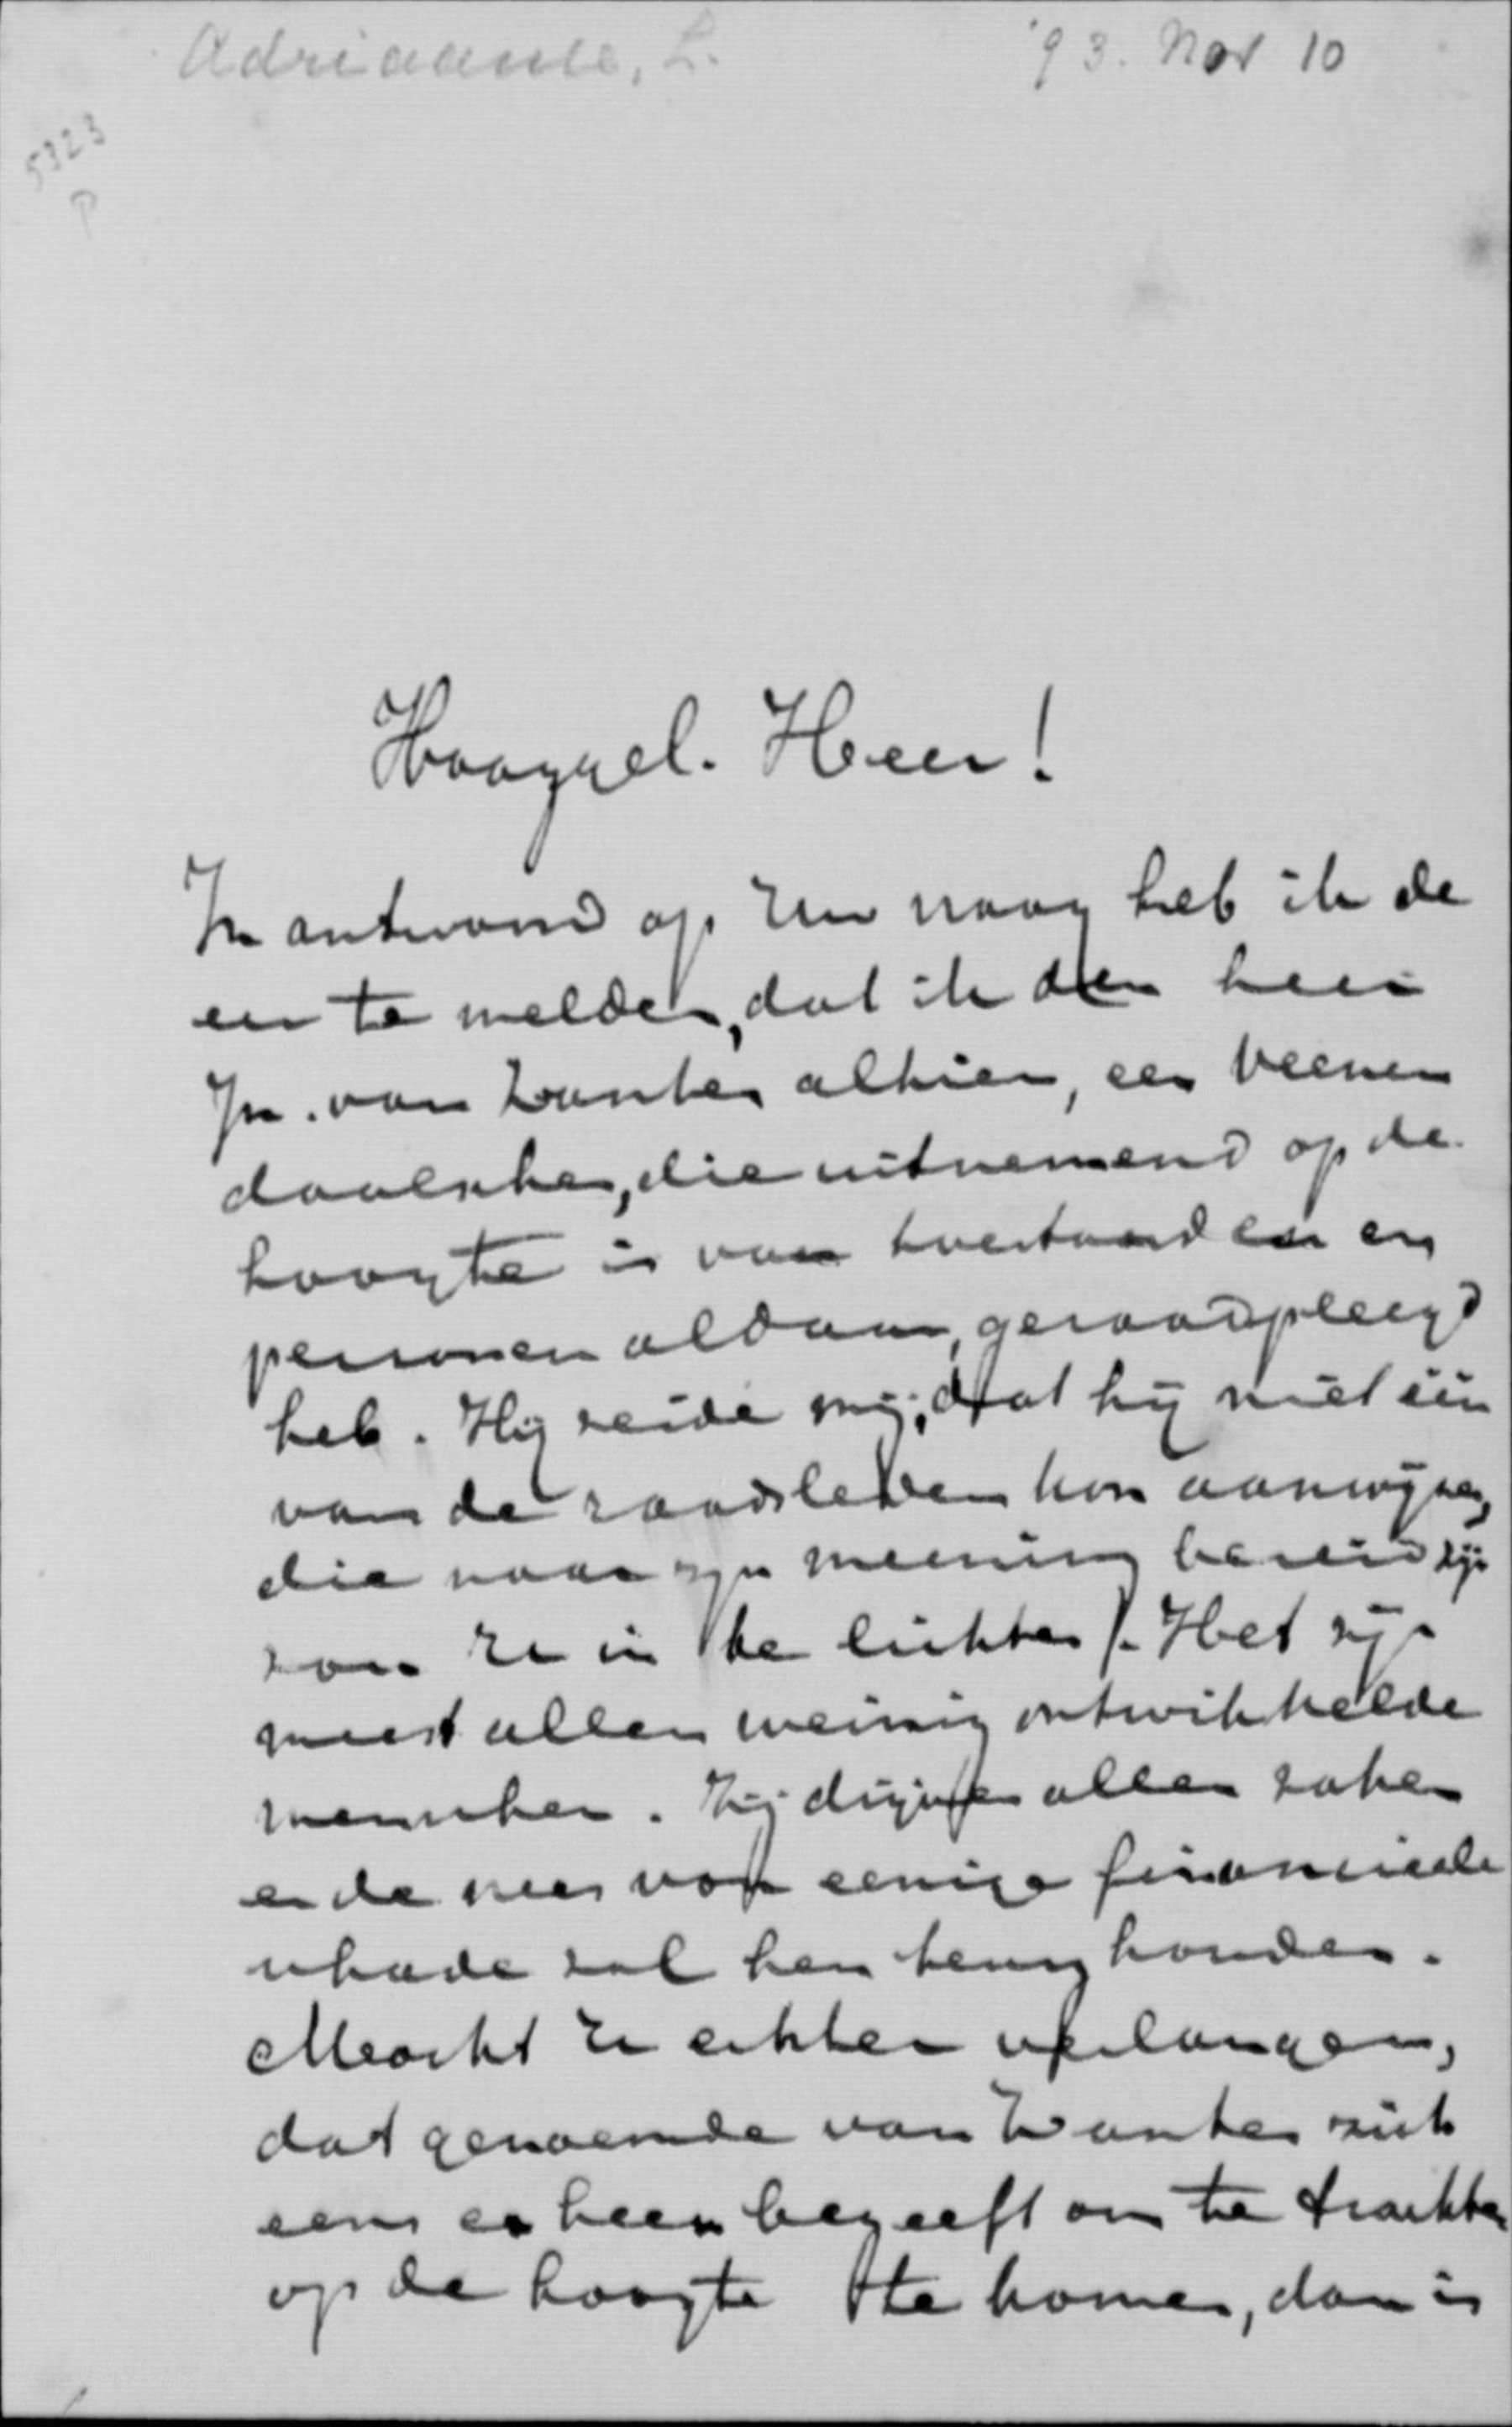 Adriaanse, L. '93. Nov 10
5323
P
Hooggel. Heer!
In antwoord op Uw vraag heb ik de
eer te melden, dat ik den heer
Jn. van Zwanten alhier, een Veenen
daalscher, die uitnemend op de
hoogte is van toestanden en
personen aldaar, geraadpleegd
heb. Hij zeide mij, dat hij niet één
van de raadsleden kon aanwijzen,
die naar zijn meening bereid zijn
zou U in te lichten. Het zijn
meest allen weinig ontwikkelde
menschen. Zij drijven allen zaken
en de vrees voor eenige financieele
schade zal hen terug houden.
Mocht U echter verlangen,
dat genoemde van Zwanten zich
eens er heen begeeft om te trachten
op de hoogte te komen, dan is